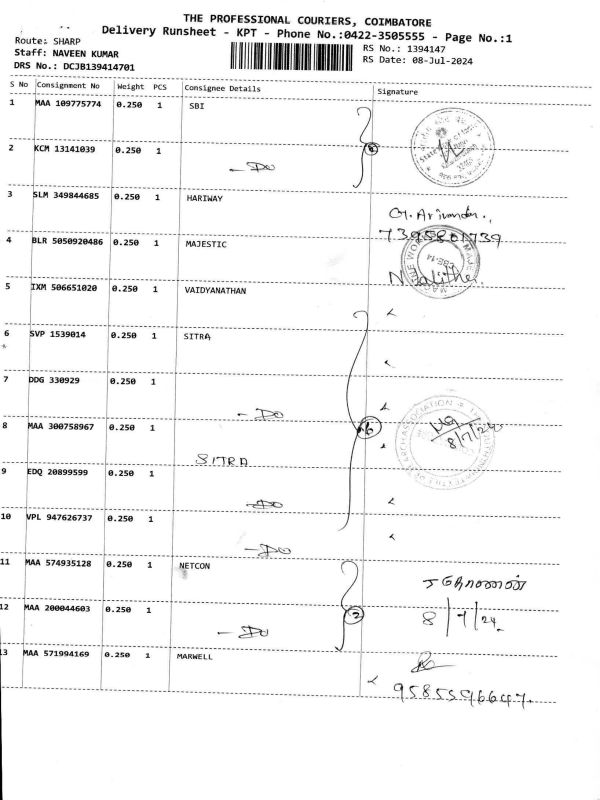 THE PROFESSIONAL COURIERS, COIMBATORE
Delivery Runsheet - KPT - Phone No.:0422-3505555 - Page No.:1
Route: SHARP
RS No.: 1394147
Staff: NAVEEN KUMAR
RS Date: 08-Jul-2024
DRS No.: DCJB139414701
S No Consignment No Weight PCS Consignee Details Signature
1 MAA 109775774 0.250 1 SBI
2 KCM 13141039 0.250 1
- Do
3 SLM 349844685 0.250 1 HARIWAY
7395801739
4 BLR 5050920486 0.250 1 MAJESTIC
5 IXM 506651020 0.250 1 VAIDYANATHAN
6 SVP 1539014 0.250 1 SITRA
7 DDG 330929 0.250 1
- Do
8 MAA 300758967 0.250 1
6
8/7/24
SITRA
9 EDQ 20899599 0.250 1
- Do
10 VPL 947626737 0.250 1
- Do
11 MAA 574935128 0.250 1 NETCON
12 MAA 200044603 0.250 1
2
8/7/24
- Do
13 MAA 571994169 0.250 1 MARWELL
9585596647